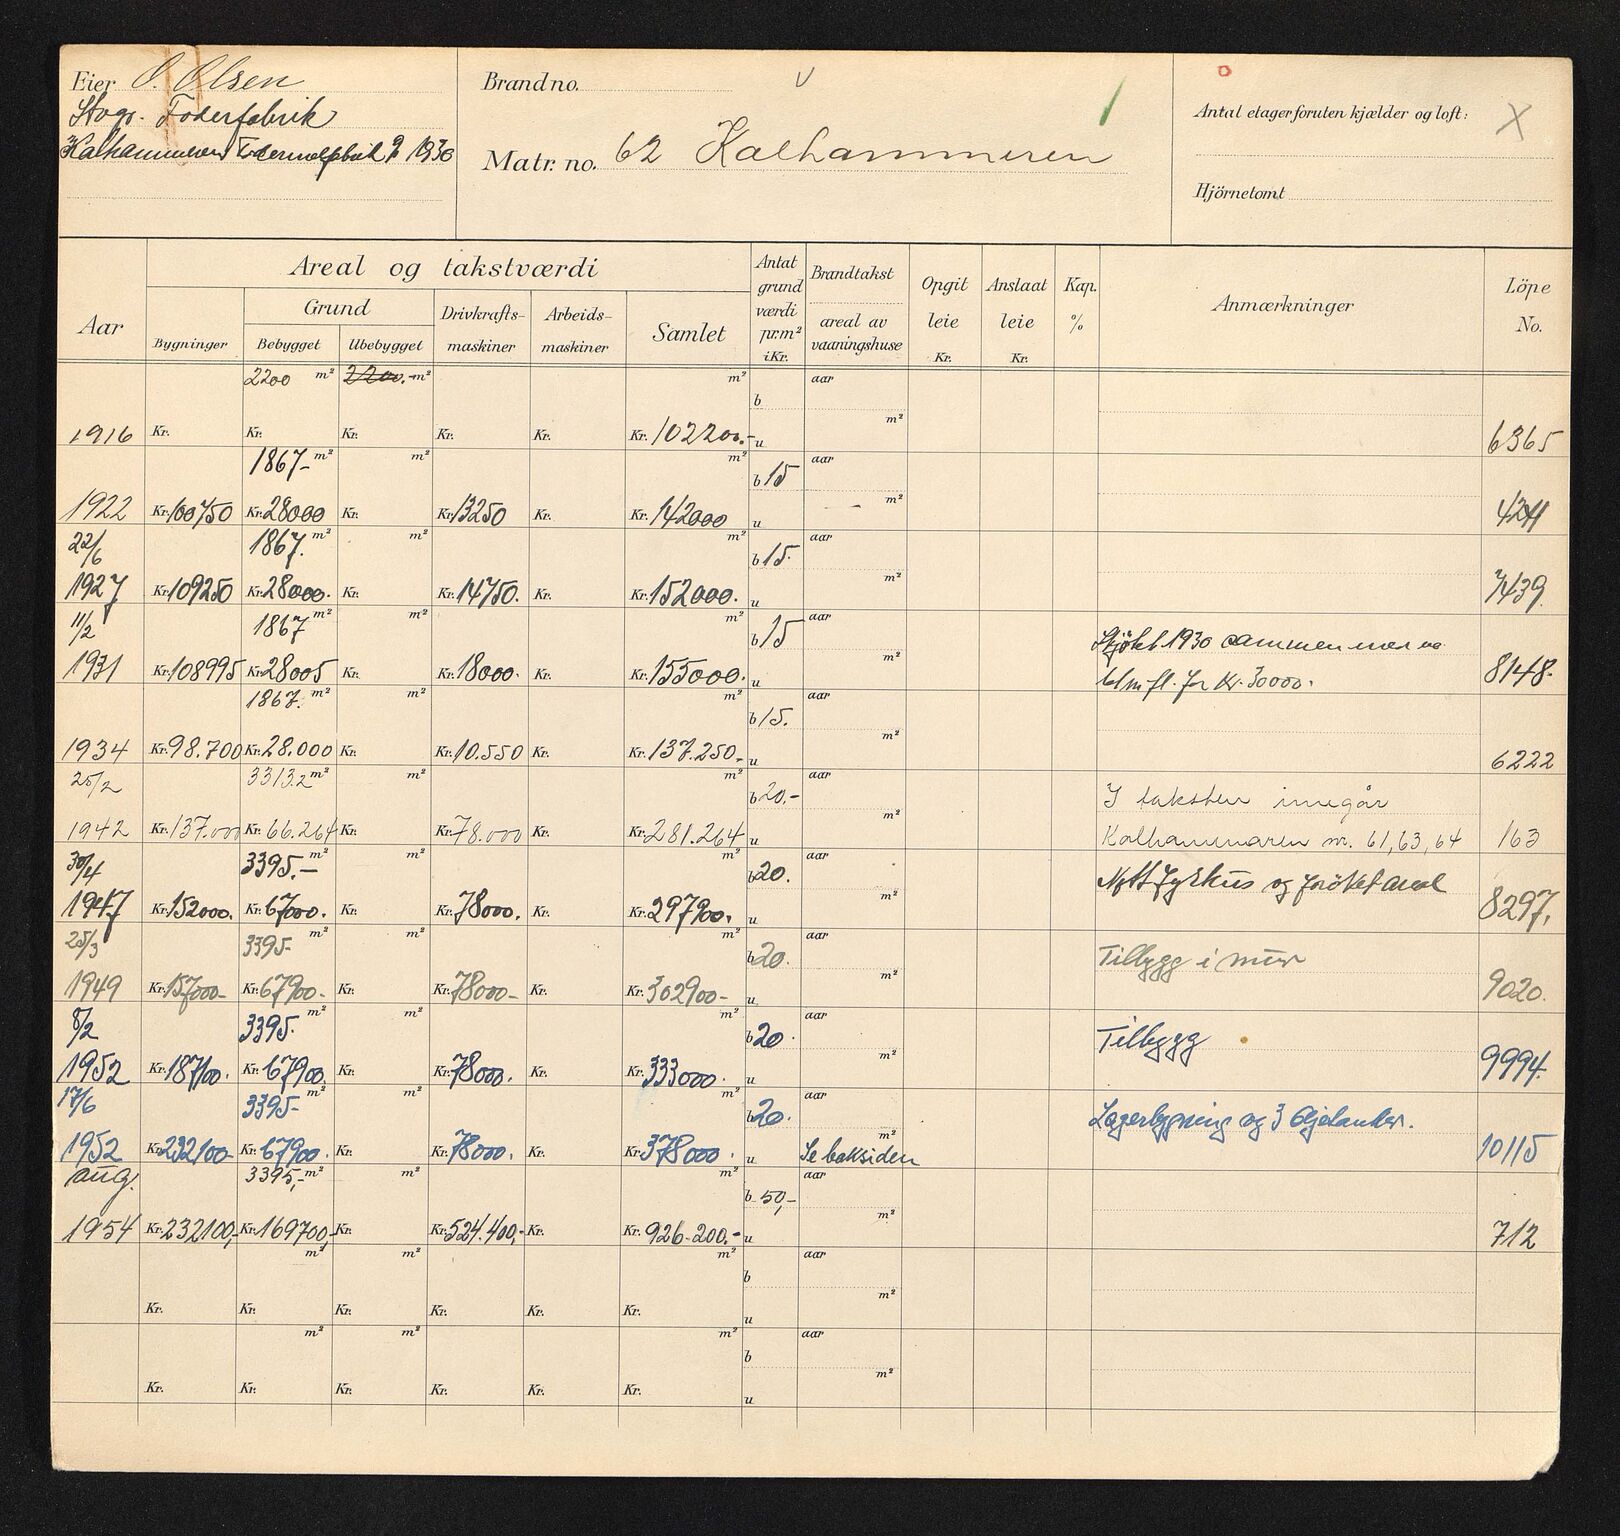 Eier O. Olsen
Stvgr. Foderfabrik
Kalhammeren 1930
Brandno.
Matr. no. 62 Kalhammeren
Antal etager foruten kjælder og loft: X
Hjörnetomt
Areal og takstværdi
Aar
Bygninger
Grund
Bebygget
Ubebygget
Drivkrafts-maskiner
Arbeids-maskiner
Samlet
Antat grund værdi pr.m² i Kr.
Brandtakst
areal av vaaningshuse
Opgit leie Kr.
Anslaat leie Kr.
Kap. %
Anmærkninger
Löpe No.
2200 m² 2200.- m² m² b aar m²
1916 Kr. Kr. Kr. Kr. Kr. Kr. 102200.- u 6365
1867- m² m² m² b 15 aar m²
1922 Kr. 100750 Kr. 28000 Kr. Kr. 13250 Kr. Kr. 142000 u 4241
22/6 1867. m² m² m² b 15. aar m²
1927 Kr. 109250 Kr. 28000. Kr. Kr. 14750. Kr. Kr. 152000. u 7439.
11/2 1867 m² m² m² b 15 aar m² Kjöbt 1930 sammen med
1931 Kr. 108995 Kr. 28005 Kr. Kr. 18000. Kr. Kr. 155000. u 61 m fl. for Kr. 30000. 8148.
1867. m² m² m² b 15. aar m²
1934 Kr. 98.700 Kr. 28.000 Kr. Kr. 10.550 Kr. Kr. 137.250.- u 6222
25/2 3313.2 m² m² m² b 20.- aar m² I taksten inngår
1942 Kr. 137.000 Kr. 66.264 Kr. Kr. 78.000 Kr. Kr. 281.264 u Kalhammaren nr. 61, 63, 64 163
30/4 3395.- m² m² m² b 20. aar m² Nytt fyrhus og forøket areal
1947 Kr. 152000. Kr. 67900. Kr. Kr. 78000. Kr. Kr. 297900. u 8297.
25/3 3395- m² m² m² b 20. aar m² Tilbygg i mur
1949 Kr. 157000- Kr. 67900- Kr. Kr. 78000- Kr. Kr. 302900- u 9020.
8/2 3395. m² m² m² b 20. aar m² Tilbygg
1952 Kr. 187100. Kr. 67900. Kr. Kr. 78000. Kr. Kr. 333000. u 9994.
17/6 3395- m² m² m² b 20. aar m² Lagerbygning og 3 oljetanker.
1952 Kr. 232100- Kr. 67900. Kr. Kr. 78000. Kr. Kr. 378000. u Se baksiden 10115
aug. 3395,- m² m² m² b 50,- aar m²
1954 Kr. 232100,- Kr. 169700,- Kr. Kr. 524.400,- Kr. Kr. 926.200.- u 712
m² m² m² b aar m²
Kr. Kr. Kr. Kr. Kr. Kr. u
m² m² m² b aar m²
Kr. Kr. Kr. Kr. Kr. Kr. u